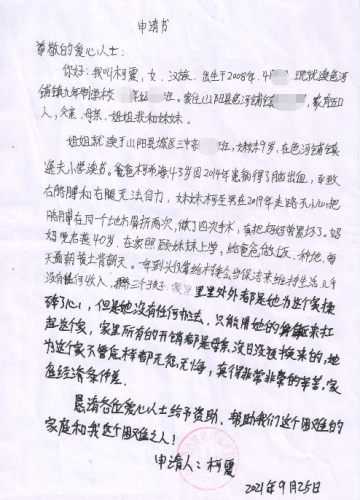 申请书
尊敬的爱心人士：
你好：我叫柯夏，女、汉族、出生于2008年、4 现就读色河
铺镇九年制学校 班。家住山阳县色河铺镇 ，家有五口
人，父亲、母亲、姐姐我和妹妹。
姐姐就读于山阳县城区三中 班，妹妹9岁、在色河铺镇
逸夫小学读书。爸爸柯 43岁因2014年 得了脑出血，导致
右胳膊和右腿无法自力，妹妹柯 在2019年走路不小心把
胳膊在同一个地方骨折两次，做了四次手术，真把妈妈常累坏了。妈
妈 40岁、在家照顾妹妹上学，给爸爸做饭、种地、每
天面朝黄土背朝天。一年到头仅靠给村 来维持生活，几乎
没有任何收入， 里里外外都是她为这个家操
碎了心，但是她没有任何办法，只能用她的 来扛
起这个家，家里所有的开销都是母亲没日没夜换来的，她
为这个家不管怎样都无怨无悔，真得非常非常的辛苦。家
庭经济条件差。
恳请各位爱心人士给予资助，帮助我们这个困难的
家庭和我这个困难之人！
申请人：柯夏
2021年9月25日